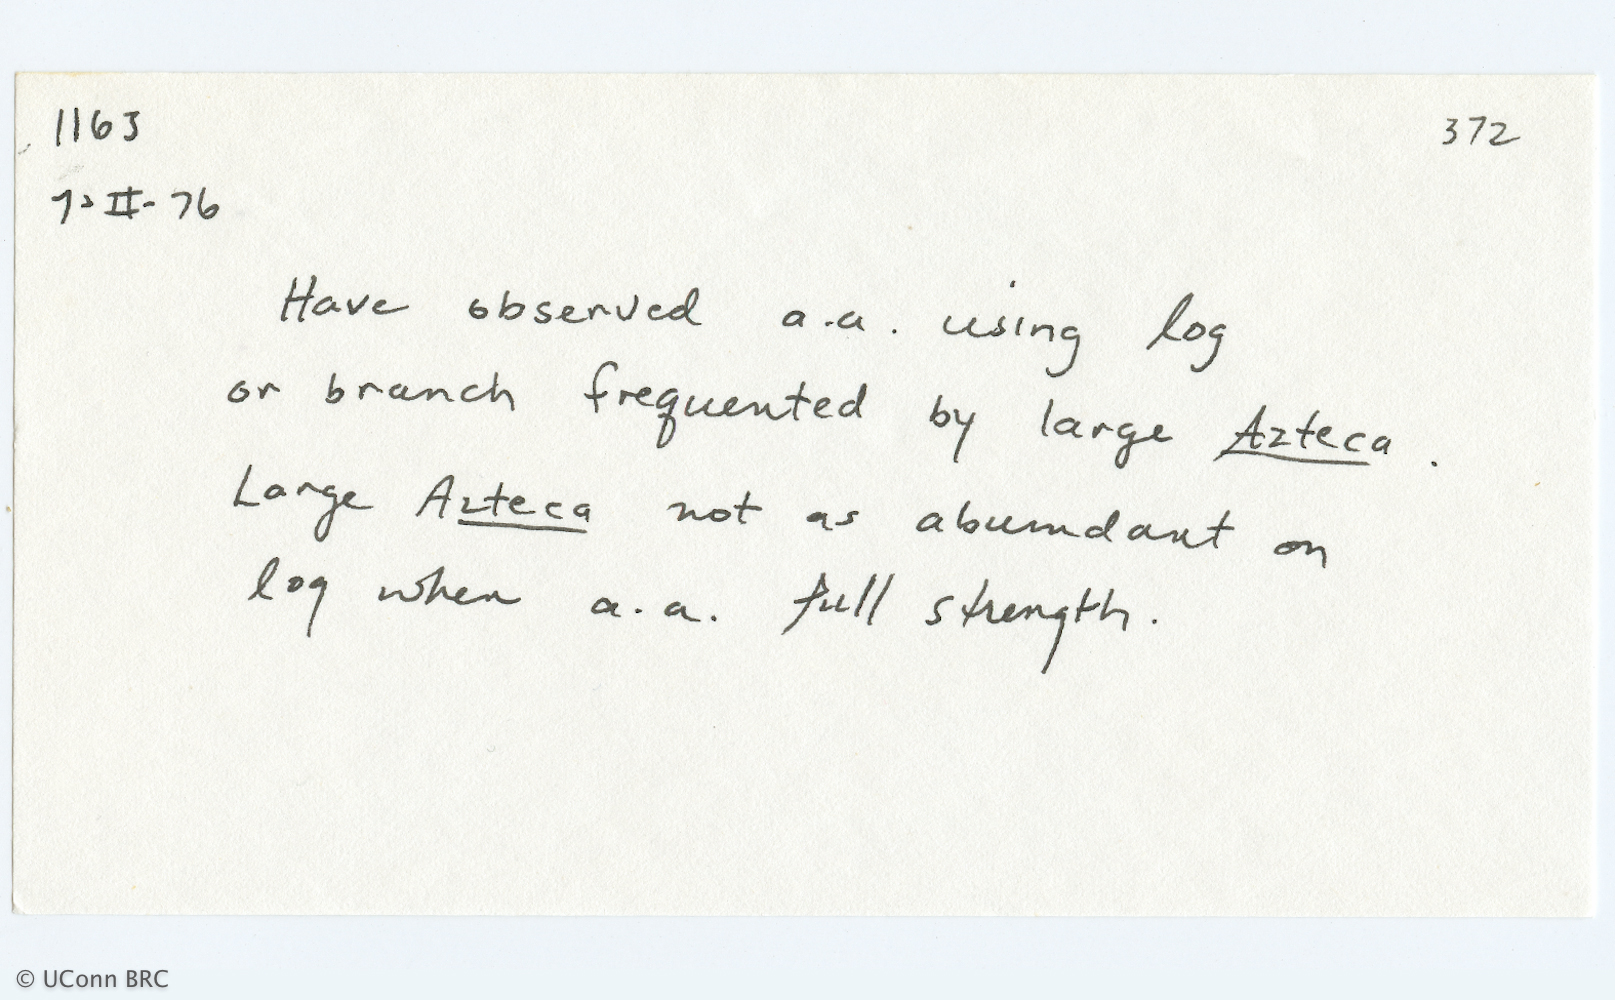 1163
372
7-II-76
Have observed a.a. using log
or branch frequented by large Azteca.
Large Azteca not as abundant on
log when a.a. full strength.
© UConn BRC